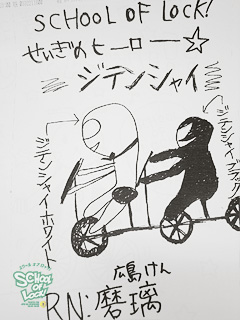 SCHOOL OF LOCK!
せいぎのヒーロー☆
ジテンシャイ
ジテンシャイホワイト
ジテンシャイブラック
SCHOOL
OF
LOCK!
広島けん
RN:磨璃